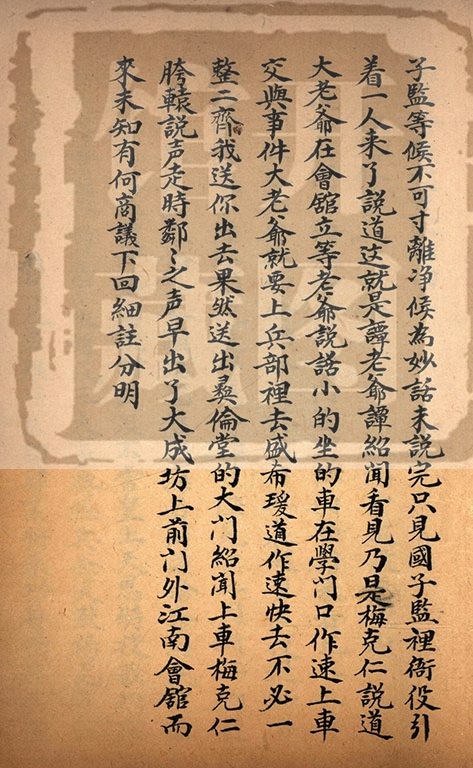 子監等候不可寸離净候為妙話未說完只見國子監裡衙役引
着一人来了說道这就是譚老爺譚紹聞看見乃是梅克仁說道
大老爺在會舘立等老爺說話小的坐的車在學門口作速上車
交與事件大老爺就要上兵部裡去盛希瑗道作速快去不必一
整二齊我送你出去果然送出彛倫堂的大门紹聞上車梅克仁
胯轅說声走時鄰〻之声早出了大成坊上前门外江南會舘而
來未知有何商議下回細註分明